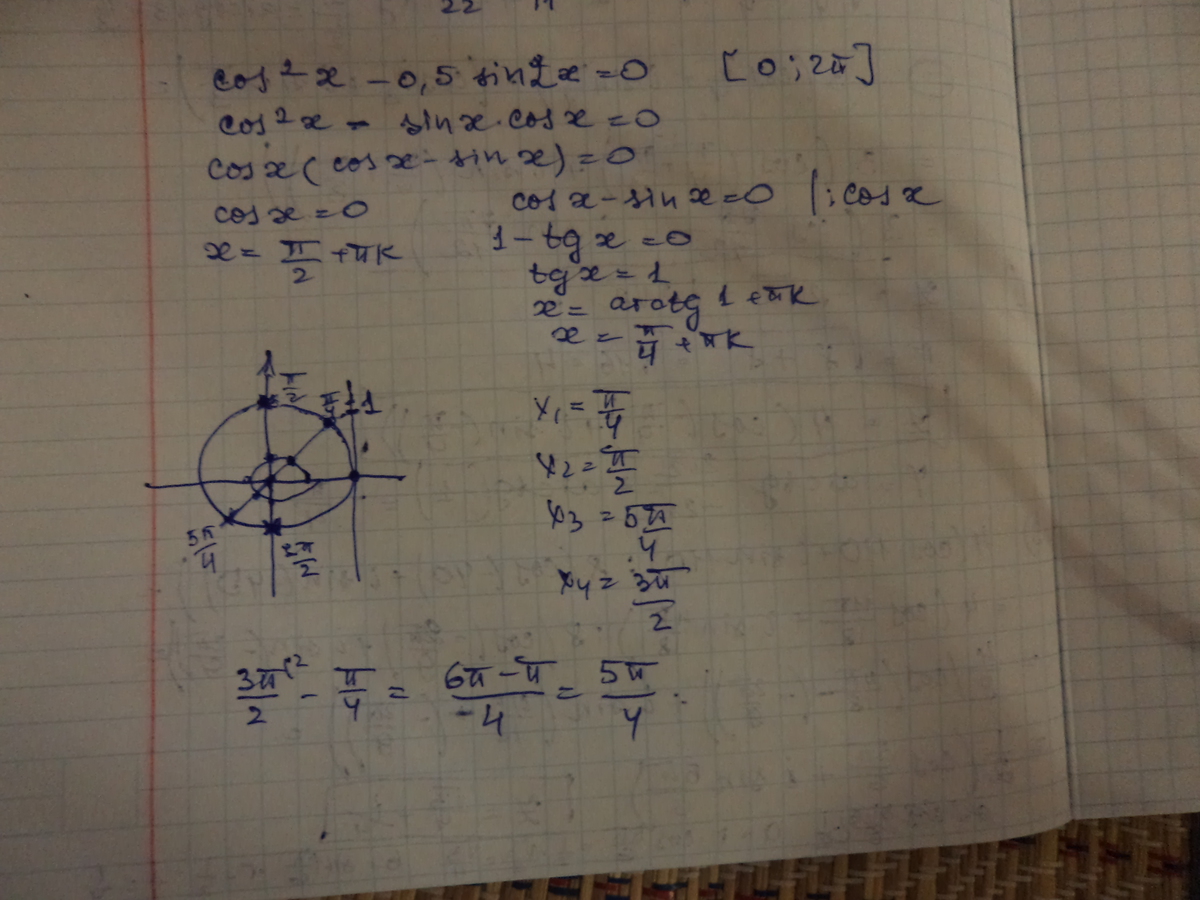 22 11
cos²x - 0,5 sin2x = 0 [0; 2π]
cos²x - sinx·cosx = 0
cosx(cosx - sinx) = 0
cosx = 0 cosx - sinx = 0 |:cosx
x = π/2 + πk 1 - tgx = 0
tgx = 1
x = arctg 1 + πk
x = π/4 + πk
π/2 π/4 1
x₁ = π/4
x₂ = π/2
x₃ = 5π/4
5π/4 3π/2
x₄ = 3π/2
3π/2 ⁽² - π/4 = 6π - π/4 = 5π/4